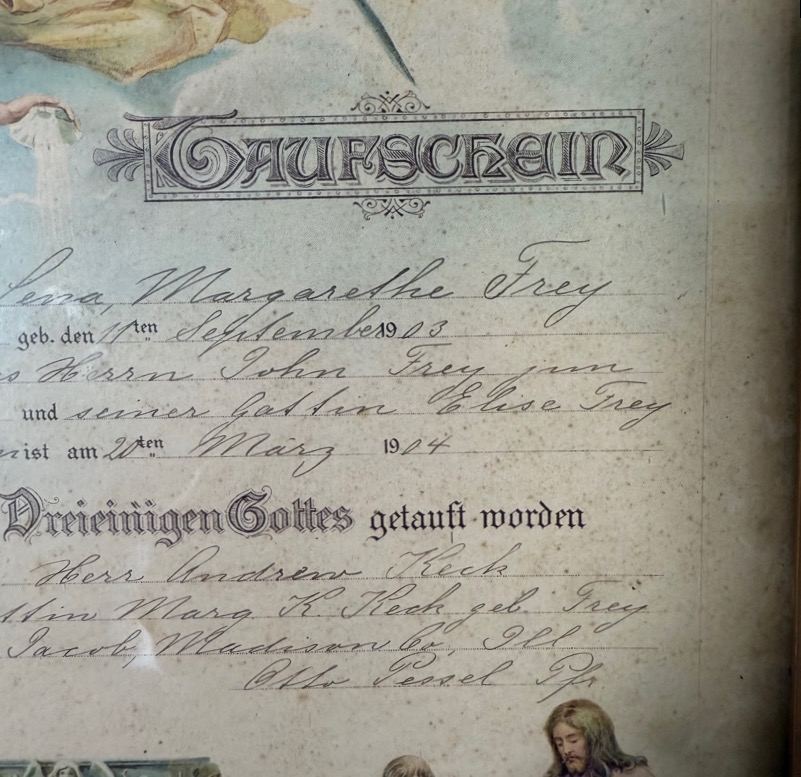 TAUFSCHEIN
Lena, Margarethe Frey
geb. den 11ten September 1903
s Herrn John Frey jun
und seiner Gattin Elise Frey
n ist am 20ten März 1904
Dreieinigen Gottes getauft worden
Herr Andrew Keck
ttin Marg K. Keck geb. Frey
Jacob, Madison Co, Ill.
Otto Pessel Pfr